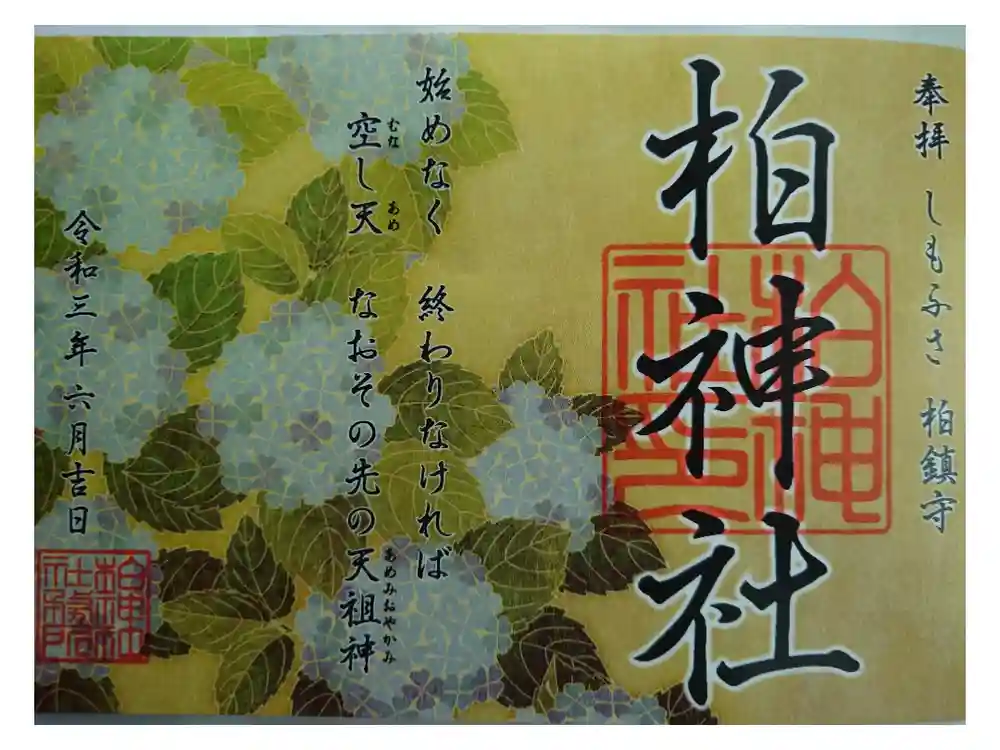 奉拝 しもふさ 柏鎮守
柏神社
柏神社印
始めなく 終わりなければ
空し天 なおその先の天祖神
むな あめ あめみおやかみ
令和三年 六月吉日